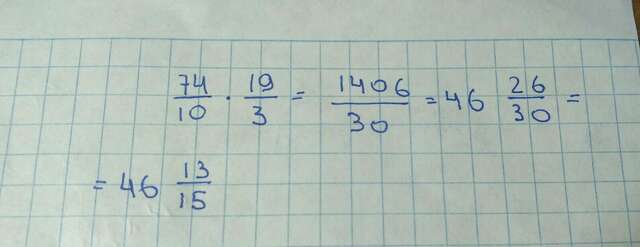 74/10 · 19/3 = 1406/30 = 46 26/30 =
= 46 13/15